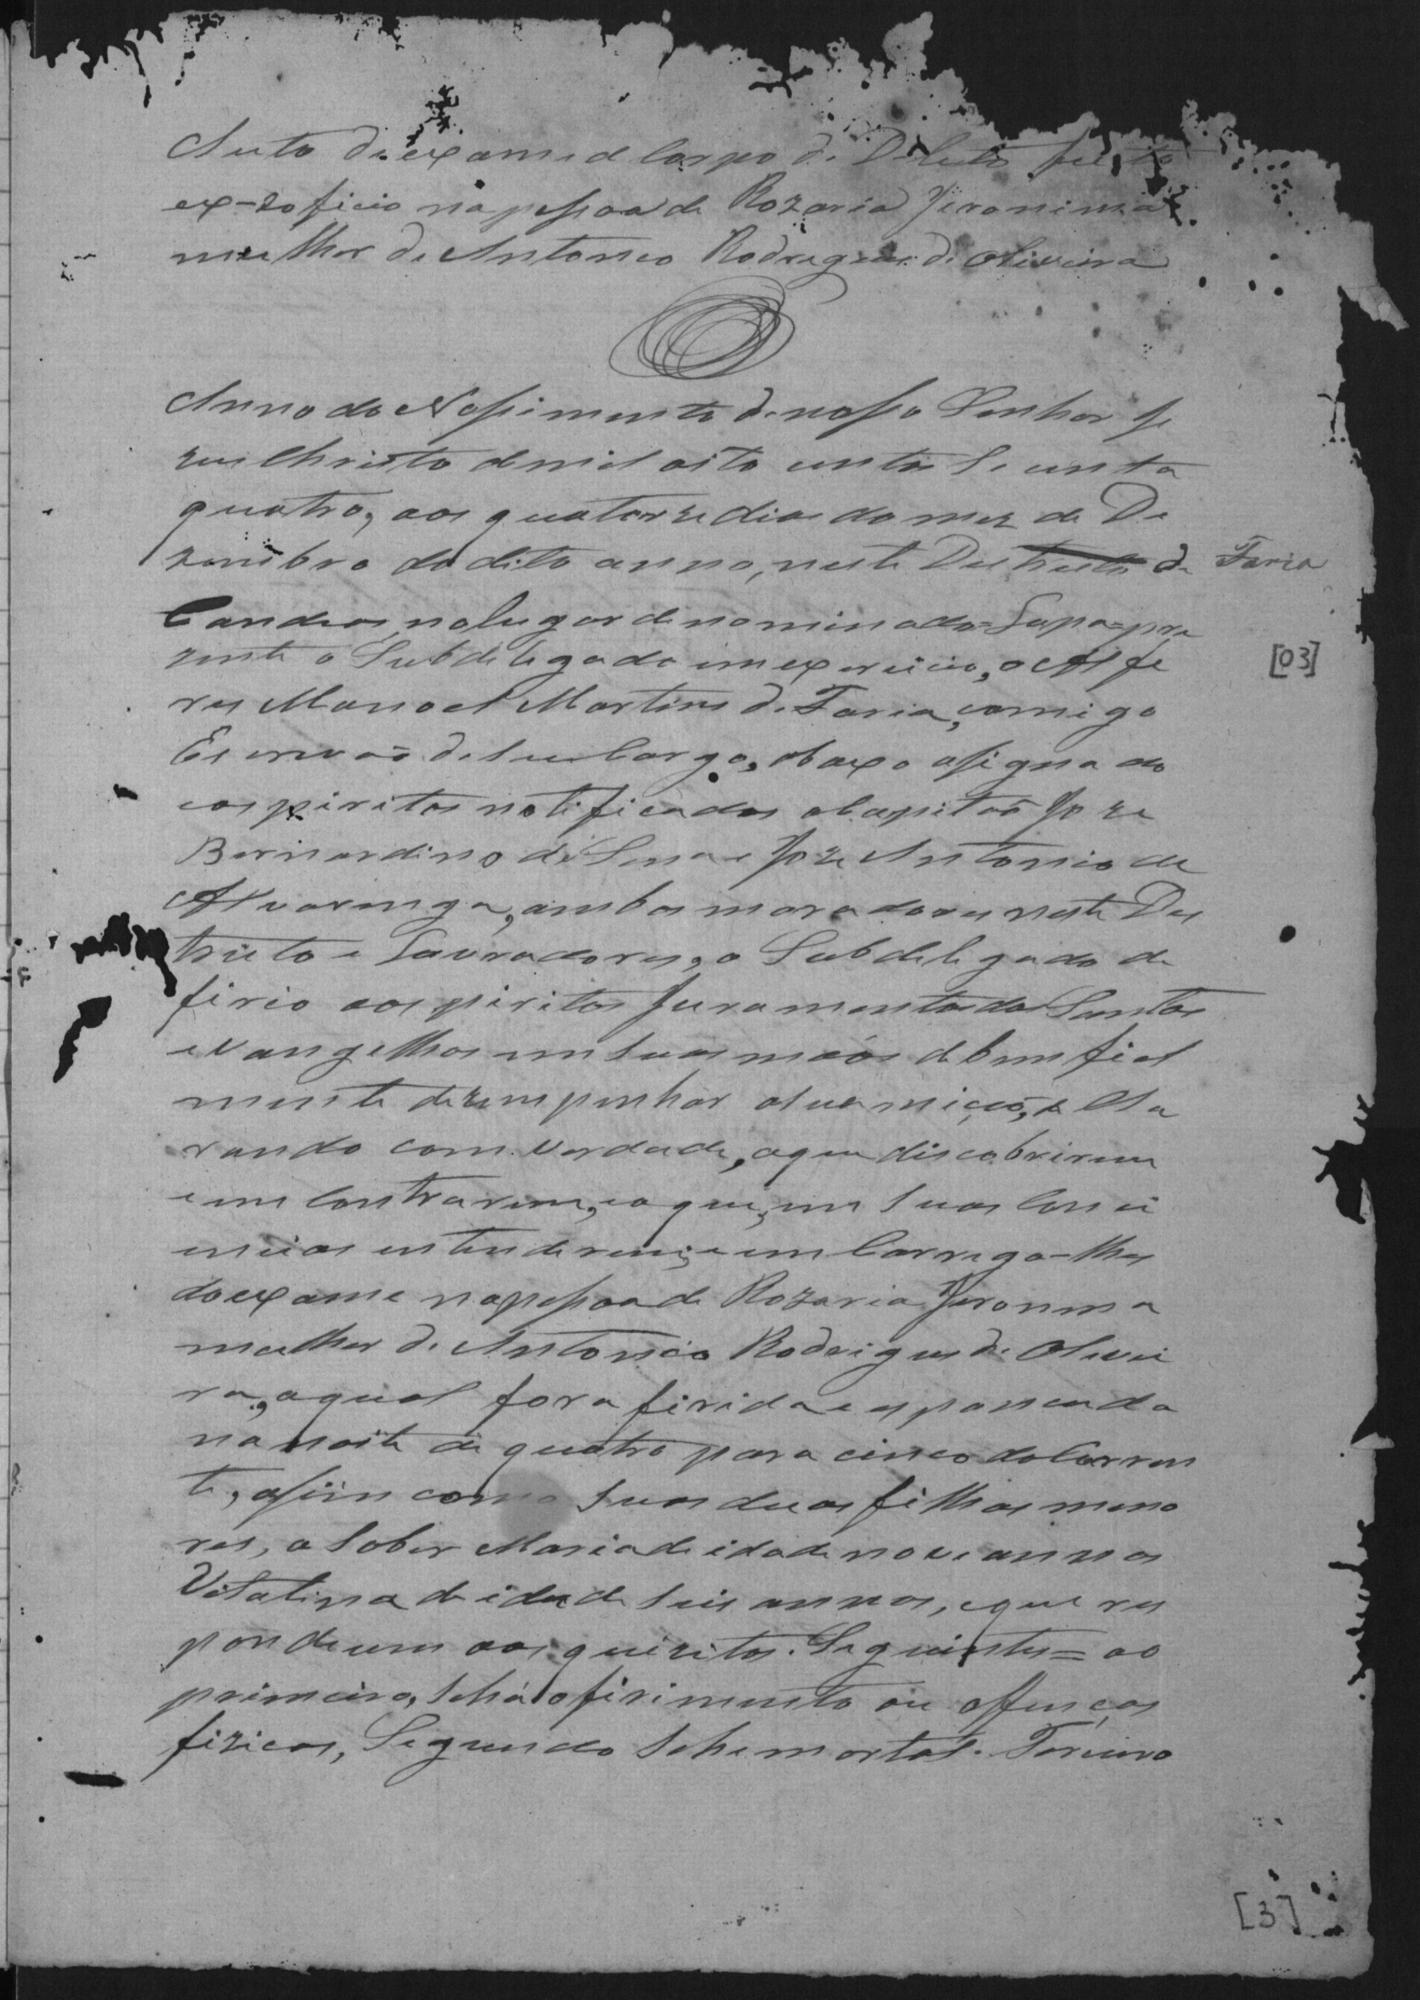 Auto de exame de Corpo de Delicto feito
ex-zoficio na pessoa de Rozaria Jeronima
mulher de Antonio Rodrigues de Oliveira
Anno do Nassimento de nosso Senhor Je
zus Christo de mil oito centos Secenta
quatro, aos quatorze dias do mez de De
zembro do dito anno, neste Destricto de Faria
Candeas no lugar denominado = Lapa = pre
zente o Subdelegado em exercicio, o Alfe
res Manoel Martins de Faria, comigo
Escrivaõ de seu Cargo, abaxo asignado
e os piritos notificados o Capitaõ Joze
Bernardino de Sena e Joze Antonio de
Alvarenga, ambos moradores neste Des
tricto e Lavradores, o Subdelegado de
firio aos piritos Juramento dos Santos
evangelhos em suas maõs de bem fiel
mente dezempenhar a sua miçaõ, e Cla
rando com verdade, o que discobrirem
e em Contrarem, e o que, em suas Consi
encias entenderem; e em Carrega-lhes
do exame na pessoa de Rozaria Jeronima
mulher de Antonio Rodrigues de Olivei
ra, a qual fora firida e espancada
na noite de quatro para cinco do Corren
te, assim como suas duas filhas meno
res, a Saber Maria de idade nove annos
Vitalina de idade seis annos, e que res
pondeum aos quizitos Seguintes = ao
primeiro, se há o firimento ou offenças
fizicas, Segundo se he mortal. Terceiro
[03]
[3]